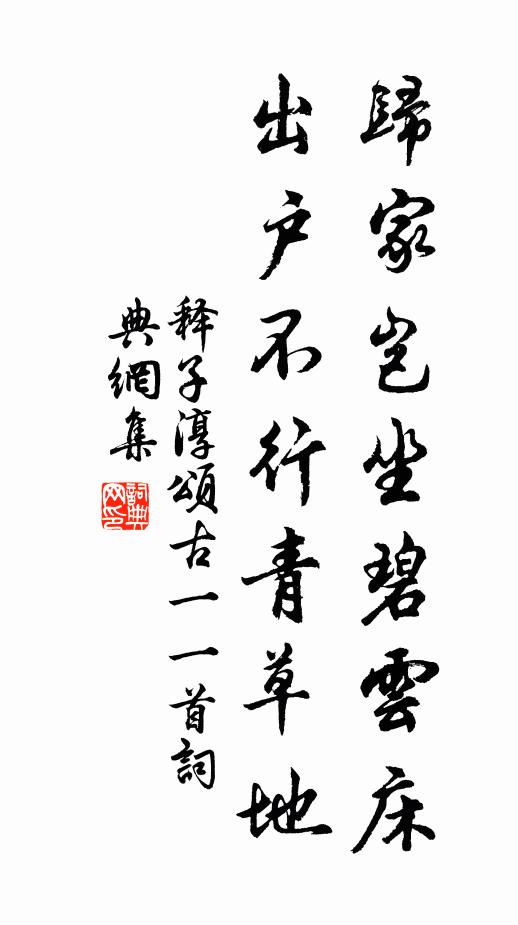 歸家豈坐碧雲床
出户不行青草地
释子淳頌古一一首詞
典網集
詞典
网印